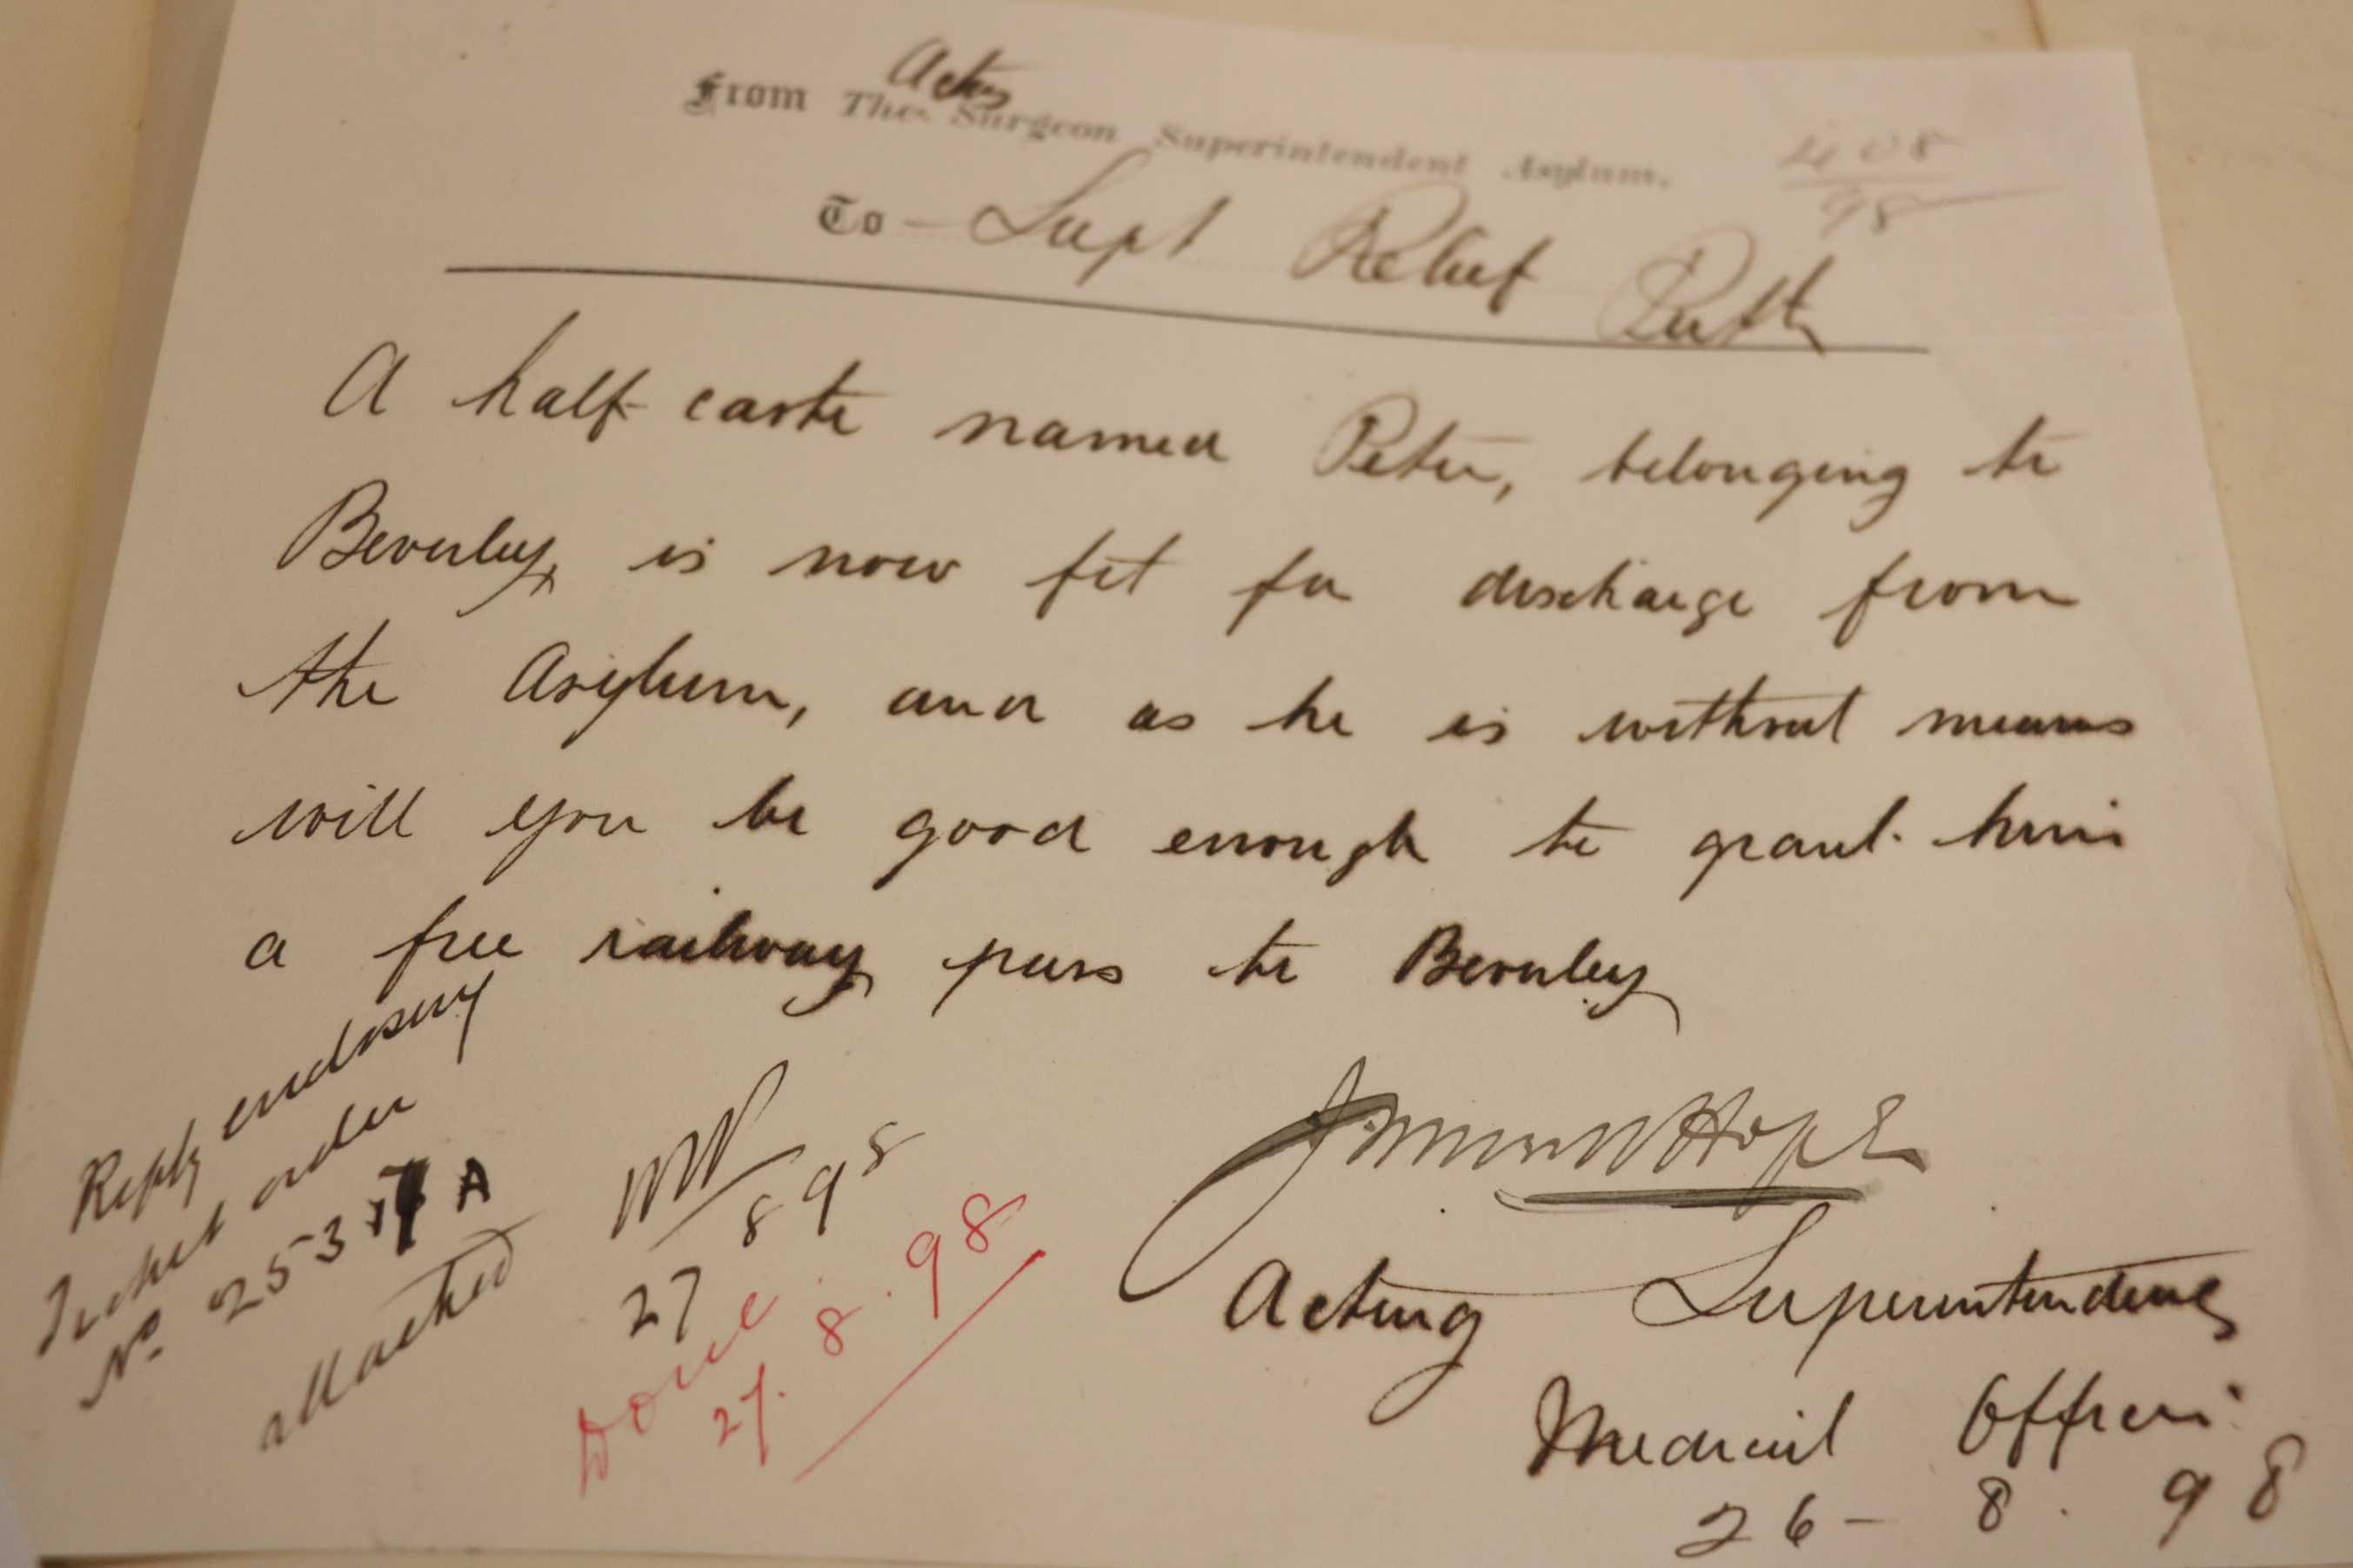 Actg
From The Surgeon Superintendent Asylum.
408
98
To - Supt Relief Perth
A half caste named Peter, belonging to
Beverley, is now fit for discharge from
the Asylum, and as he is without means
will you be good enough to grant him
a free railway pass to Beverley
Reply enclosing
Ticket order
No. 2535 A
attached
27 8 98
Done
27. 8. 98
Hope
Acting Superintending
Medical Officer
26 - 8. 98